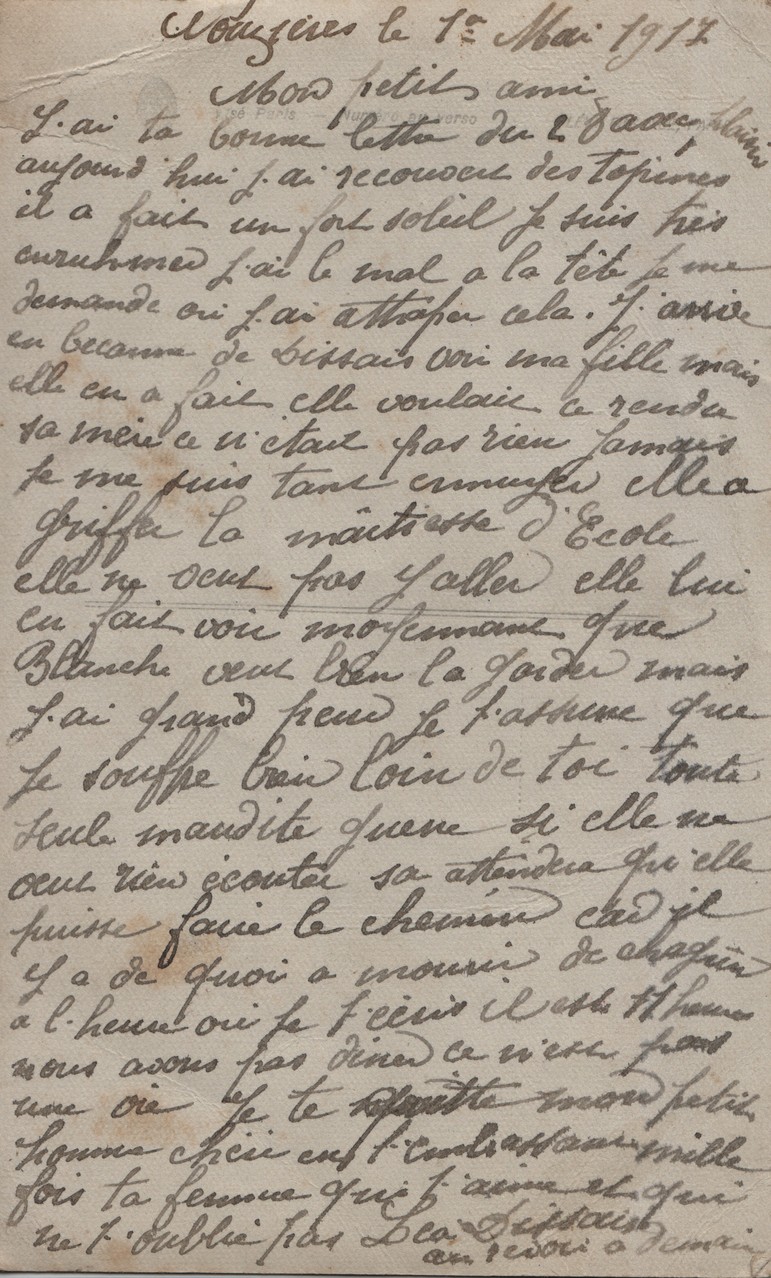 le 1er Mai 1917
Mon petit ami
J.ai ta bonne lettre du 2
aujourd'hui J.ai recouvert des topines
il a fait un fort soleil Je suis très
enruhmer J.ai le mal a la tête Je me
demande ou J.ai attraper cela. J'arrive
en becanne de Dissais voir ma fille mais
elle en a fait elle voulait ce rendre
sa mère ce n'etait pas rien Jamais
Je me suis tant ennuyer elle a
Griffer la maîtresse d'Ecole
elle ne veut pas Y aller elle lui
en fait voir moyennant que
Blanche veut bien la garder mais
J.ai grand peur Je t'assure que
Je souffre bien loin de toi toute
seule maudite guerre si elle ne
veut rien écouter sa attendra qu'elle
puisse faire le chemin car il
Y a de quoi a mourir de chagrin
a l.heure ou Je t'écris il est 11 heures
nous avons pas diner ce n'est pas
une vie Je te quitte mon petit
homme chéri en t'embrassant mille
fois ta femme qui t'aime et qui
ne t'oublie pas Lea Dissais
au revoir a demain
Visé Paris Numéro au verso